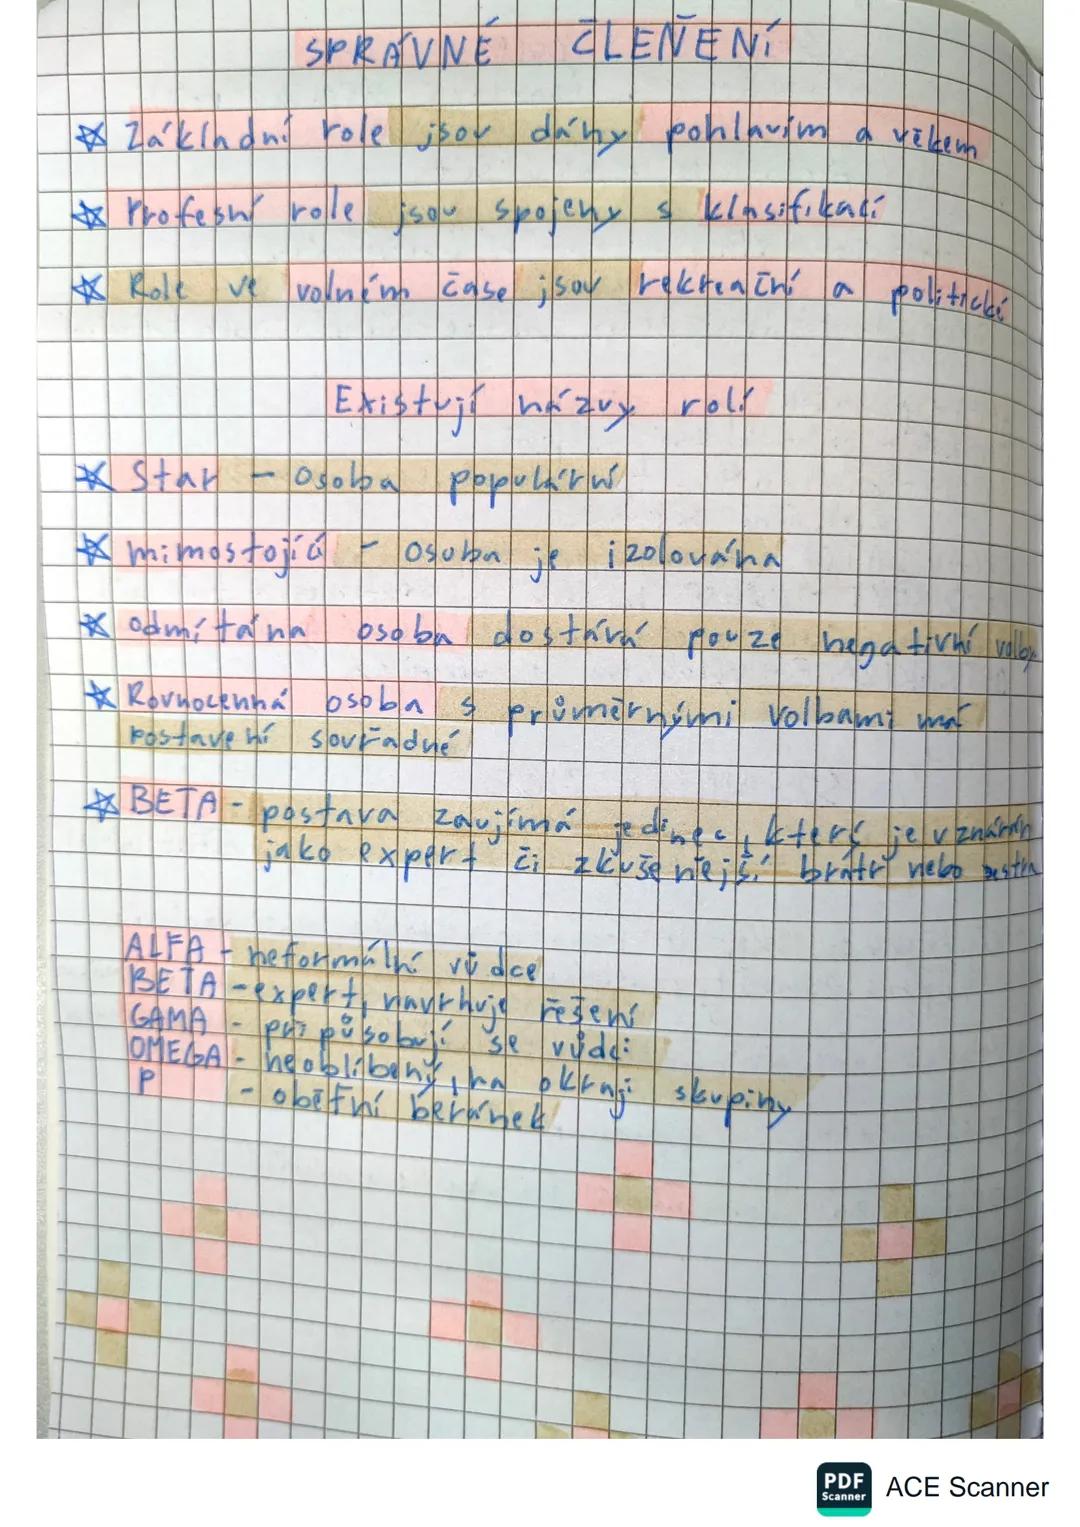 SPRÁVNÉ ČLEŇENÍ
Základní role jsou dány pohlavím a věkem
Profesní role jsou spojeny s klasifikací
Role ve volném čase jsou rekreační a politické
Existují názvy rolí
Star - osoba populární
mimostojící - osoba je izolována
odmítána osoba dostává pouze negativní volby
Rovnocenná osoba s průměrnými volbami má
postavení souřadné
BETA - postava zaujímá jedinec, který je v znám
jako expert či zkušenější bratr nebo sestra
ALFA - neformální vůdce
BETA - expert, navrhuje řešení
GAMA - přizpůsobují se vůdci
OMEGA - neoblíbený, na okraji skupiny
P - obětní beránek
PDF
Scanner
ACE Scanner